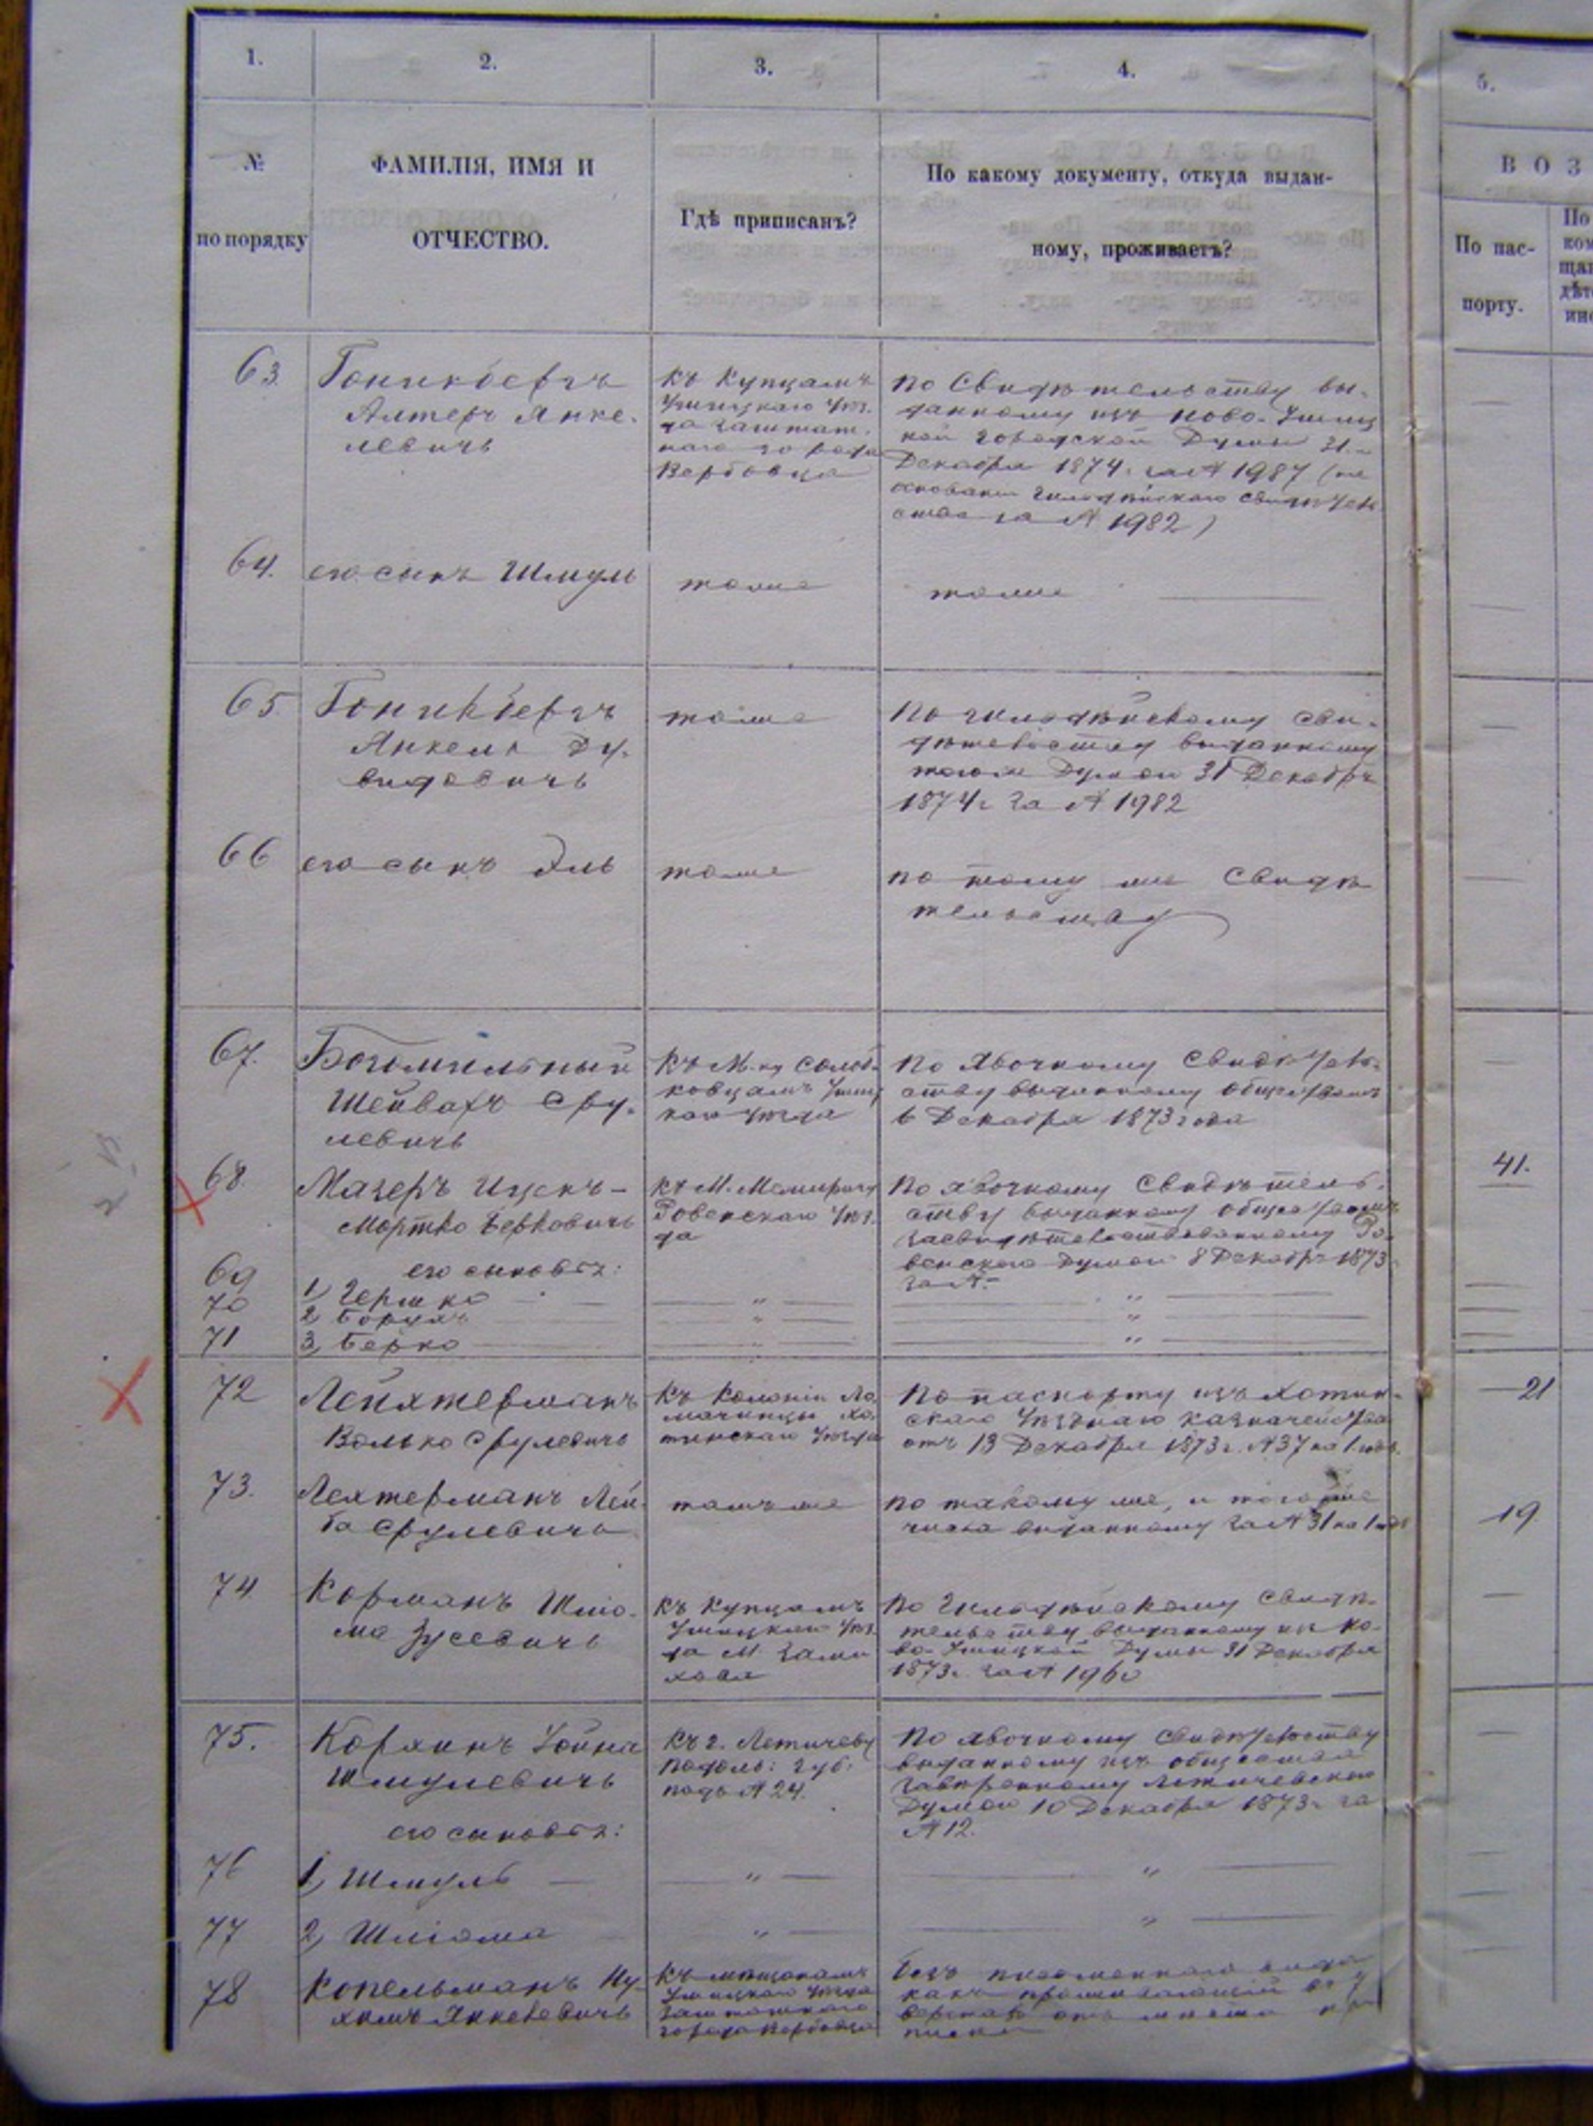 1. 2. 3. 4. 5.
№ по порядку
ФАМИЛІЯ, ИМЯ И
ОТЧЕСТВО.
Гдѣ приписанъ?
По какому документу, откуда выдан-
ному, проживаетъ?
В О З
По пас-
порту.
По
63.
Гоникбергъ
Алтеръ Янке-
левичъ
Къ Купцамъ
Ушицкаго Уѣз-
да заштат-
наго города
Вербовца
по Свидѣтельству вы-
данному изъ Ново-Ушиц
кой Городской Думы 31-го
Декабря 1874 г. за № 1987 (на
основании гильдѣйскаго свидѣтель
ства за № 1982)
64.
его сынъ Шмуль
тоже
тоже
65
Гоникбергъ
Янкель Ду-
видовичъ
тоже
По гильдѣйскому сви-
дѣтельству выданному
тою же Думою 31 Декабря
1874 г за № 1982
66
его сынъ Эль
тоже
по тому же Свидѣ
тельству
67.
Богомильный
Шейвахъ Сру-
левичъ
Къ М-ку Солоб-
ковцамъ Ушиц
каго Уѣзда
По Явочному Свидѣтель-
ству выданному обществомъ
6 Декабря 1873 года
68.
Мазеръ Ицекъ-
Мортко Берковичъ
Къ М. Межиричу
Ровенскаго Уѣз-
да
По явочному Свидѣтель-
ству выданному обществомъ
засвидѣтельствованному Ро-
венскою Думою 8 Декабря 1873
за №-
41.
его сыновья:
69
1, Гершко — " — "
70
2, Борухъ — " — "
71
3, Берко — " — "
72
Лейхтерманъ
Волько Срулевичъ
Къ Колоніи Ло-
мачинцы Хо-
тинскаго Уѣзда
По паспорту изъ Хотин-
скаго Уѣзднаго казначейства
отъ 13 Декабря 1873 г. № 37 на 1 годъ.
21
73.
Лехтерманъ Лей-
ба Срулевичъ
тамъ же
по такому же, и того же
числа выданному за № 31 на 1 годъ
19
74.
Корманъ Шліо-
ма Зусевичъ
Къ Купцамъ
Ушицкаго Уѣз-
да М. Зами
хова
По Гильдѣйскому Свидѣ-
тельству выданному изъ Но-
во-Ушицкой Думы 31 Декабря
1873 г. за № 1960
75.
Корхинъ Іойна
Шмулевичъ
Къ г. Летичеву
Подоль: губ:
подъ № 24.
По явочному Свидѣтельству
выданному изъ общества
завѣренному Летичевскою
Думою 10 Декабря 1873 г за
№ 12.
его сыновья:
76
1, Шмуль — " — "
77
2, Шліома — " — "
78
Копельманъ Ну-
химъ Янкелевичъ
Къ мѣщанамъ
Ушицкаго Уѣзда
Заштатнаго
города Вербовца
безъ письменнаго вида
какъ проживающій въ
верстахъ отъ мѣста при
писки